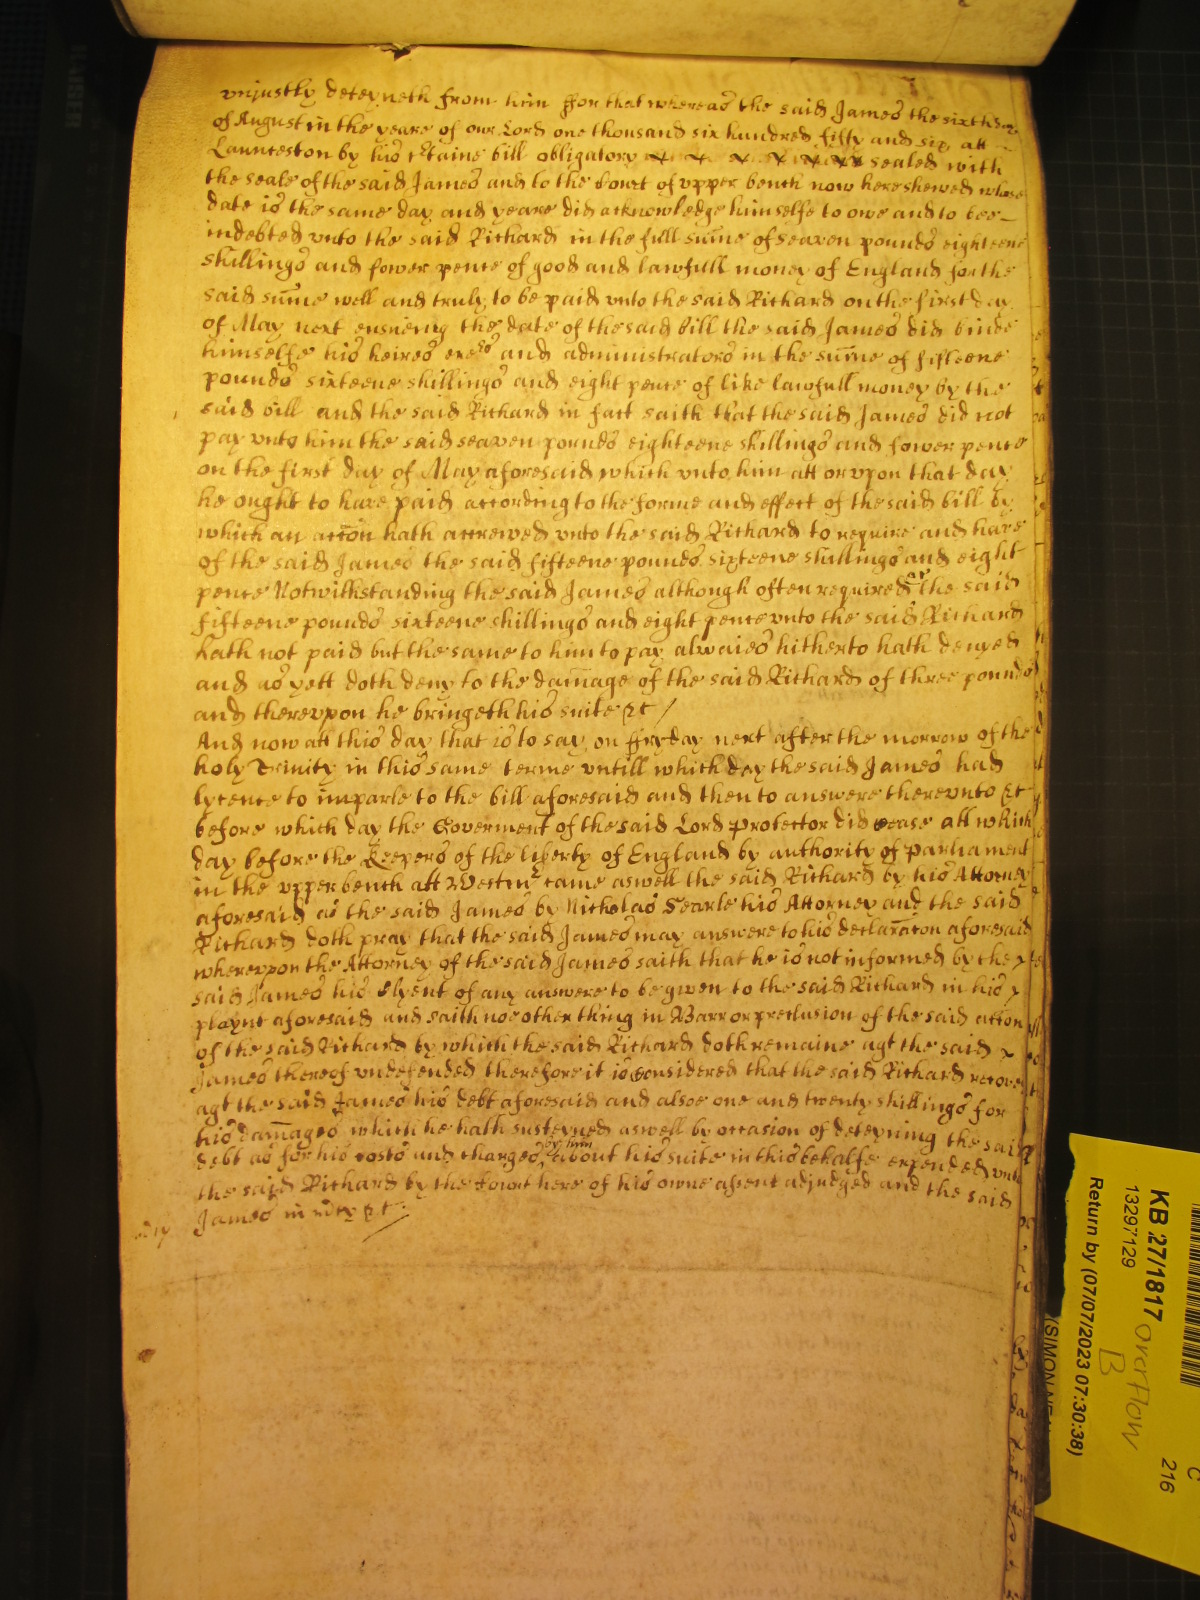 vniustly deteyneth from him ffor that whereas the said James the sixth day
of August in the yeare of our Lord one thousand six hundred fifty and six att
Launceston by his c̃taine bill obligatory sealed with
the seale of the said James and to the Court of vpper bench now here shewed whose
date is the same day and yeare did acknowledge himselfe to owe and to bee
indebted vnto the said Richard in the full sum̃e of seaven pounds eighteene
shillings and fower pence of good and lawfull money of England for the
said sum̃e well and truly to be paid vnto the said Richard on the first day
of May next ensueing the date of the said bill the said James did binde
himselfe his heires exec͞rs and administrators in the sum̃e of fifteene
pounds sixteene shillings and eight pence of like lawfull money by the
said bill and the said Richard in fact saith that the said James did not
pay vnto him the said seaven pounds eighteene shillings and fower pence
on the first day of May aforesaid which vnto him att or vpon that day
he ought to have paid according to the forme and effect of the said bill by
which an acc͠on hath accrewed vnto the said Richard to require and have
of the said James the said fifteene pounds sixteene shillings and eight
pence Notwithstanding the said James although often required &c the said
fifteene pounds sixteene shillings and eight pence vnto the said Richard
hath not paid but the same to him to pay alwaies hitherto hath denyed
and as yett doth deny to the dam̃age of the said Richard of three pounds
and therevpon he bringeth his suite &c /
And now att this day that is to say on ffryday next after the morrow of the
holy Trinity in this same terme vntill which day the said James had
lycence to imparle to the bill aforesaid and then to answere therevnto &c
before which day the Goverment of the said Lord Protector did cease att which
day before the Keepers of the liberty of England by authority of Parliament
in the vpper bench att Westm̃ came aswell the said Richard by his Attorney
aforesaid as the said James by Nicholas Searle his Attorney and the said
Richard doth pray that the said James may answere to his declarac͠on aforesaid
wherevpon the Attorney of the said James saith that he is not informed by the
said James his Clyent of any answere to be given to the said Richard in his
playnt aforesaid and saith noe other thing in Barr or preclusion of the said acc͠on
of the said Richard by which the said Richard doth remaine agt the said
James thereof vndefended therefore it is considered that the said Richard recover
agt the said James his debt aforesaid and alsoe one and twenty shillings for
his dam̃ages which he hath susteyned aswell by occasion of deteyning the said
debt as for his costs and charges by him about his suite in this behalfe expended vnto
the said Richard by the Court here of his owne assent adjudged and the said
James in m̃cy &c
KB 27/1817
13297129
Return by (07/07/2023 07:30:38)
overflow
B
C
216